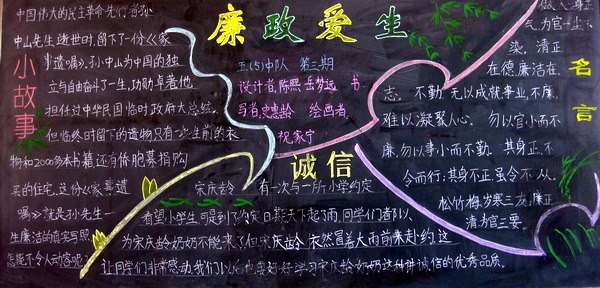 廉政爱生
五(5)中队 第三期
设计者:陈熙 岳梦远 书
写者:史惠龄 绘画者:
祝家宁
小故事
中国伟大的民主革命先行者孙
中山先生逝世时,留下了一份《家
事遗嘱》。孙中山为中国的独
立与自由奋斗了一生,功勋卓著他
担任过中华民国临时政府大总统,
但临终时留下的遗物只有一生前的衣
物和2000多本书籍还有侨胞募捐购
买的住宅,这份《家事遗
嘱》就是孙先一
生廉洁的真实写照
怎能不令人动容呢?
诚信
宋庆龄 有一次与一所小学约定
看望小学生,可是到了约定日期天下起了雨,同学们都以
为宋庆龄奶奶不能来了但宋庆龄依然冒着大雨前来赴约,这
让同学们非常感动,我们以后也要好好学习宋庆龄奶奶这种诚信的优秀品质。
名言
做人一身正
气,为官一尘不
染。清正
在德,廉洁在
志。不勤,无以成就事业,不廉,
难以凝聚人心。勿以官小而不
廉,勿以事小而不勤。其身正,不
令而行;其身不正,虽令不从。
松竹梅岁寒三友,廉正
清为官三要。